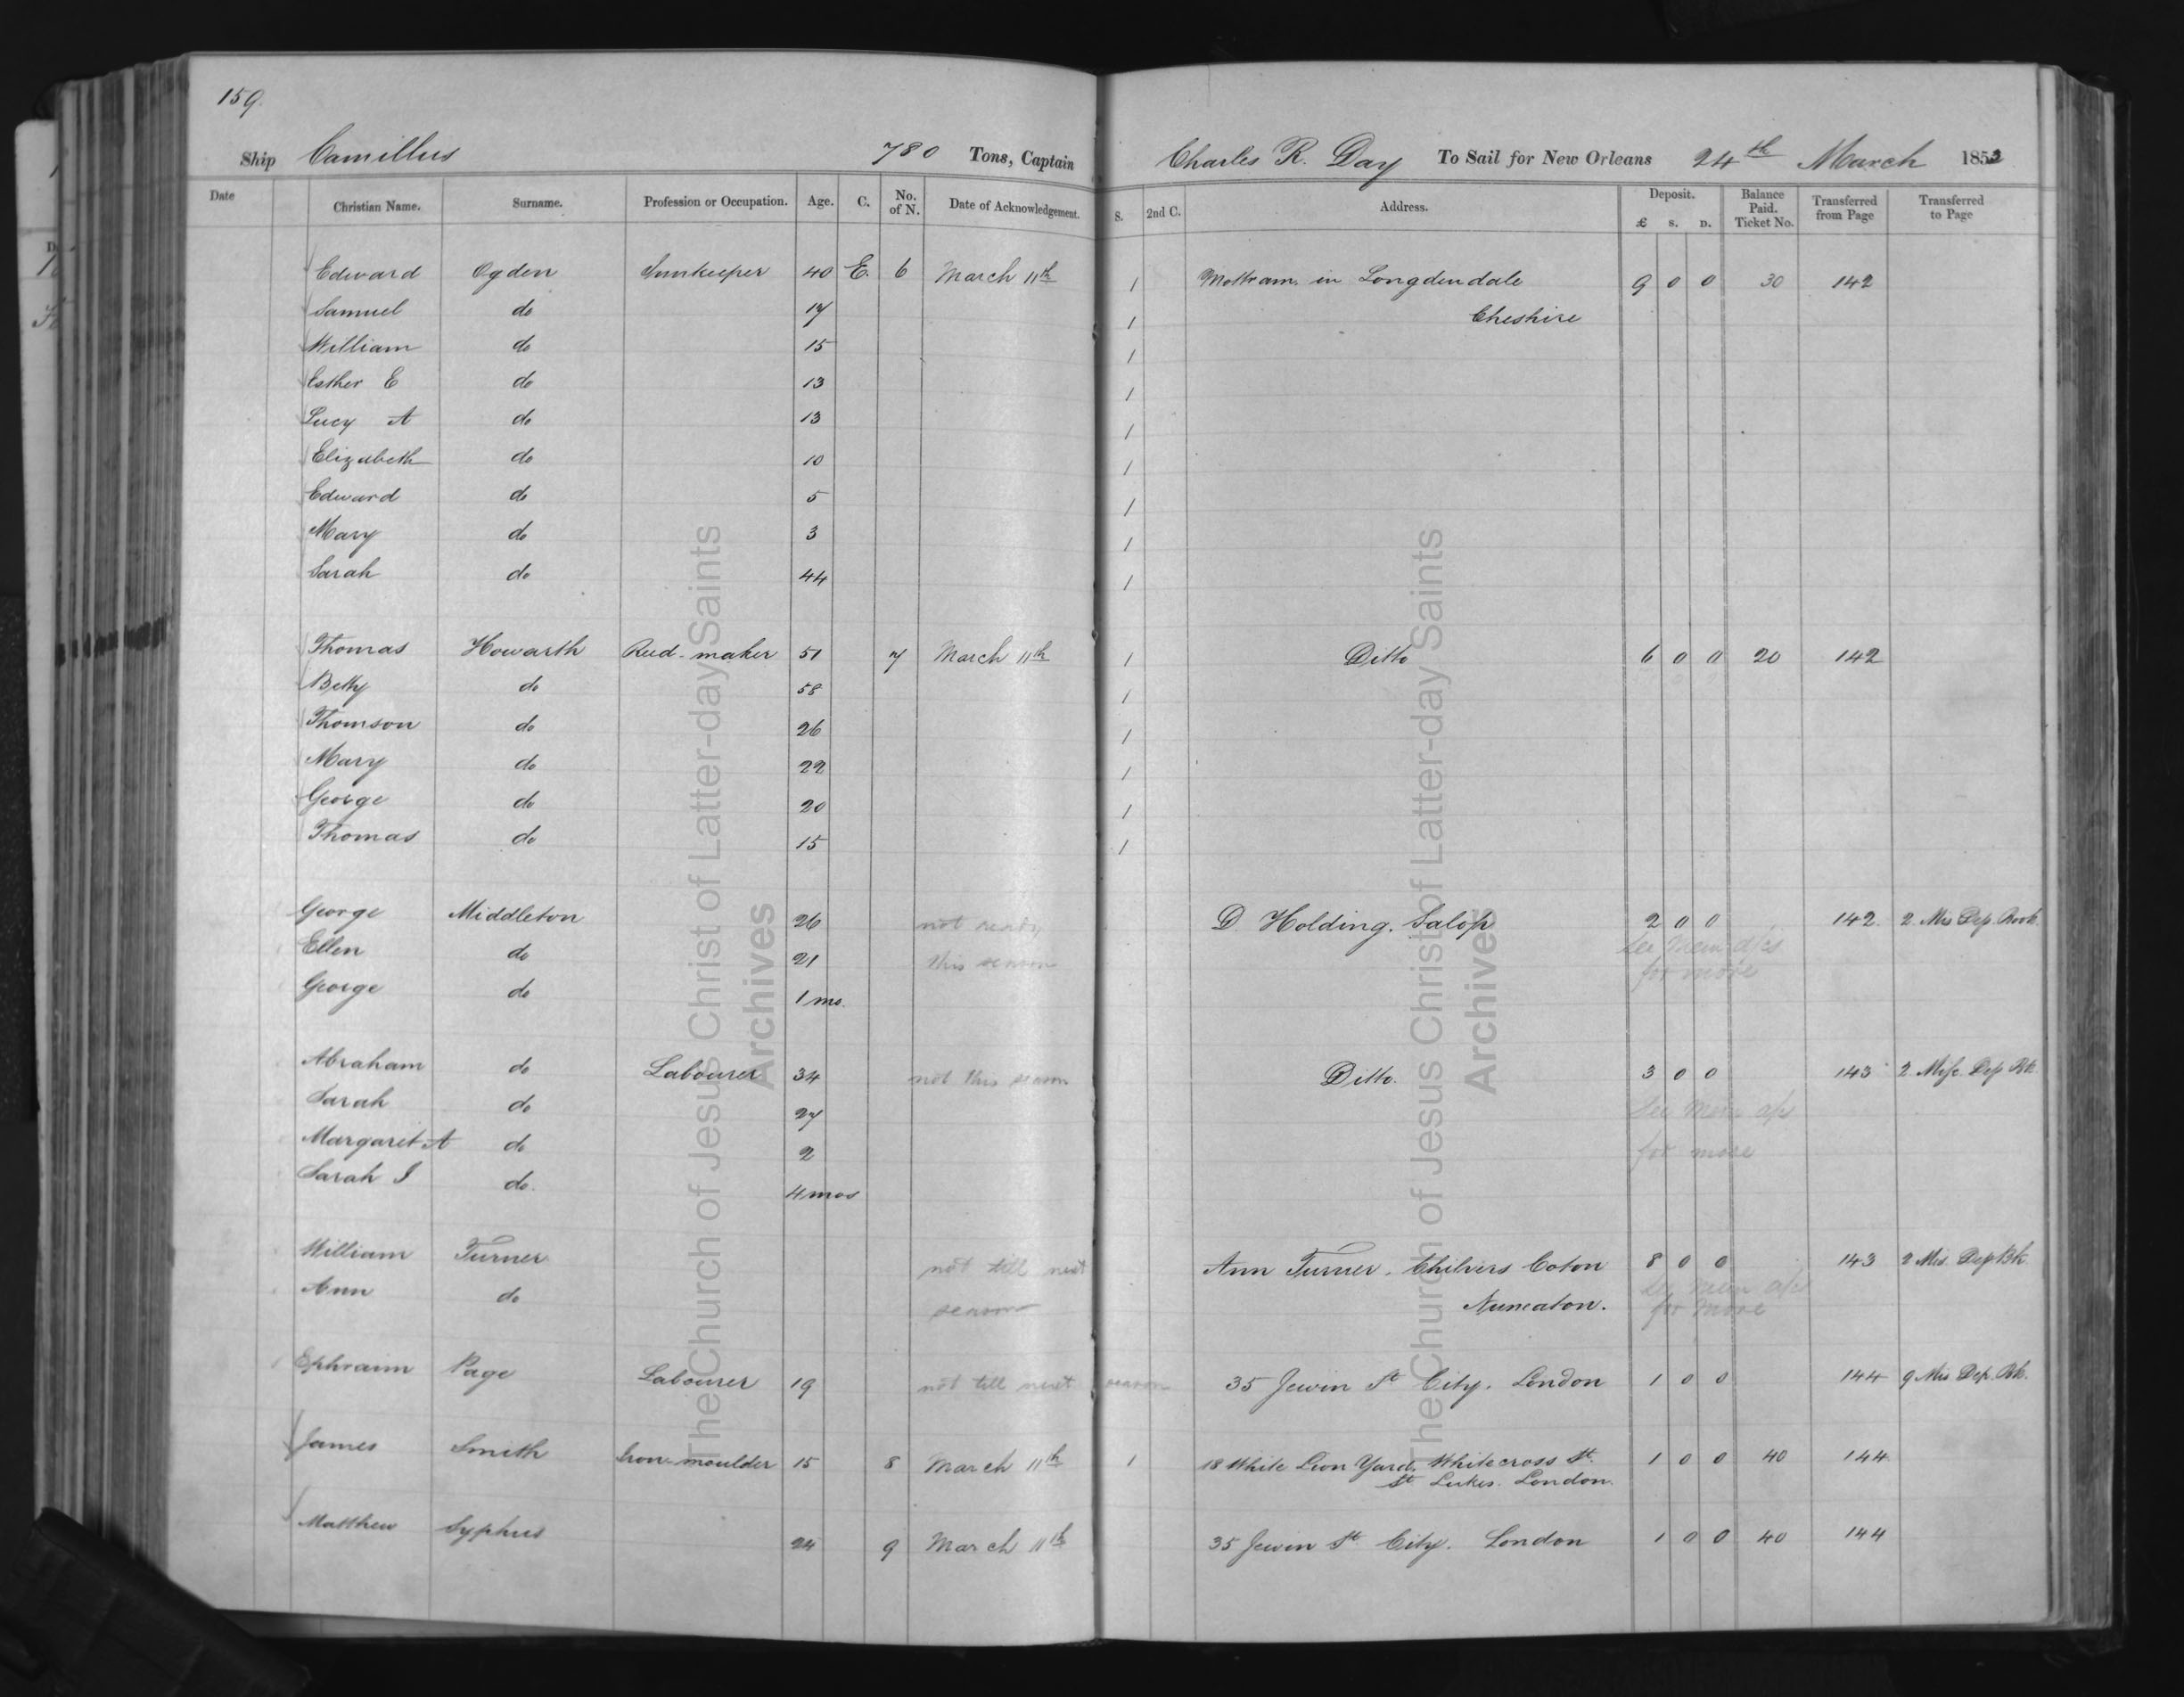 159.
Ship Camillus 780 Tons, Captain Charles R. Day To Sail for New Orleans 24th March 1853
Date Christian Name. Surname. Profession or Occupation. Age. C. No. of N. Date of Acknowledgement. S. 2nd C. Address. Deposit. £ S. D. Balance Paid. Ticket No. Transferred from Page Transferred to Page
Edward Ogden Innkeeper 40 E. 6 March 11th 1 Mottram in Longdendale 9 0 0 30 142
Samuel do 17 1 Cheshire
William do 15 1
Esther E do 13 1
Lucy A do 13 1
Elizabeth do 10 1
Edward do 5 1
Mary do 3 1
Sarah do 44 1
Thomas Howarth Reed-maker 51 7 March 11th 1 Ditto 6 0 0 20 142
Betty do 58 1
Thomson do 26 1
Mary do 22 1
George do 20 1
Thomas do 15 1
George Middleton 26 not ready D Holding. Salop 2 0 0 142 2 Mis Dep. Book
Ellen do 21 this season see Mem a/cs
George do 1 mo. for more
Abraham do Labourer 34 not this season Ditto. 3 0 0 143 2 Misc. Dep Bk
Sarah do 27 See Mem a/c
Margaret A do 2 for more
Sarah J do. 4 mos
William Turner not till next Ann Turner. Chilvers Coton 8 0 0 143 2 Mis. Dep Bk
Ann do season Nuneaton. see mem a/c for more
Ephraim Page Labourer 19 not till next season 35 Jewin St City. London 1 0 0 144 9 Mis Dep. Bk.
James Smith Iron-moulder 15 8 March 11th 1 18 White Lion Yard, Whitecross St. 1 0 0 40 144
St Lukes. London.
Matthew Syphus 24 9 March 11th 35 Jewin St City. London 1 0 0 40 144
The Church of Jesus Christ of Latter-day Saints
Archives
The Church of Jesus Christ of Latter-day Saints
Archives